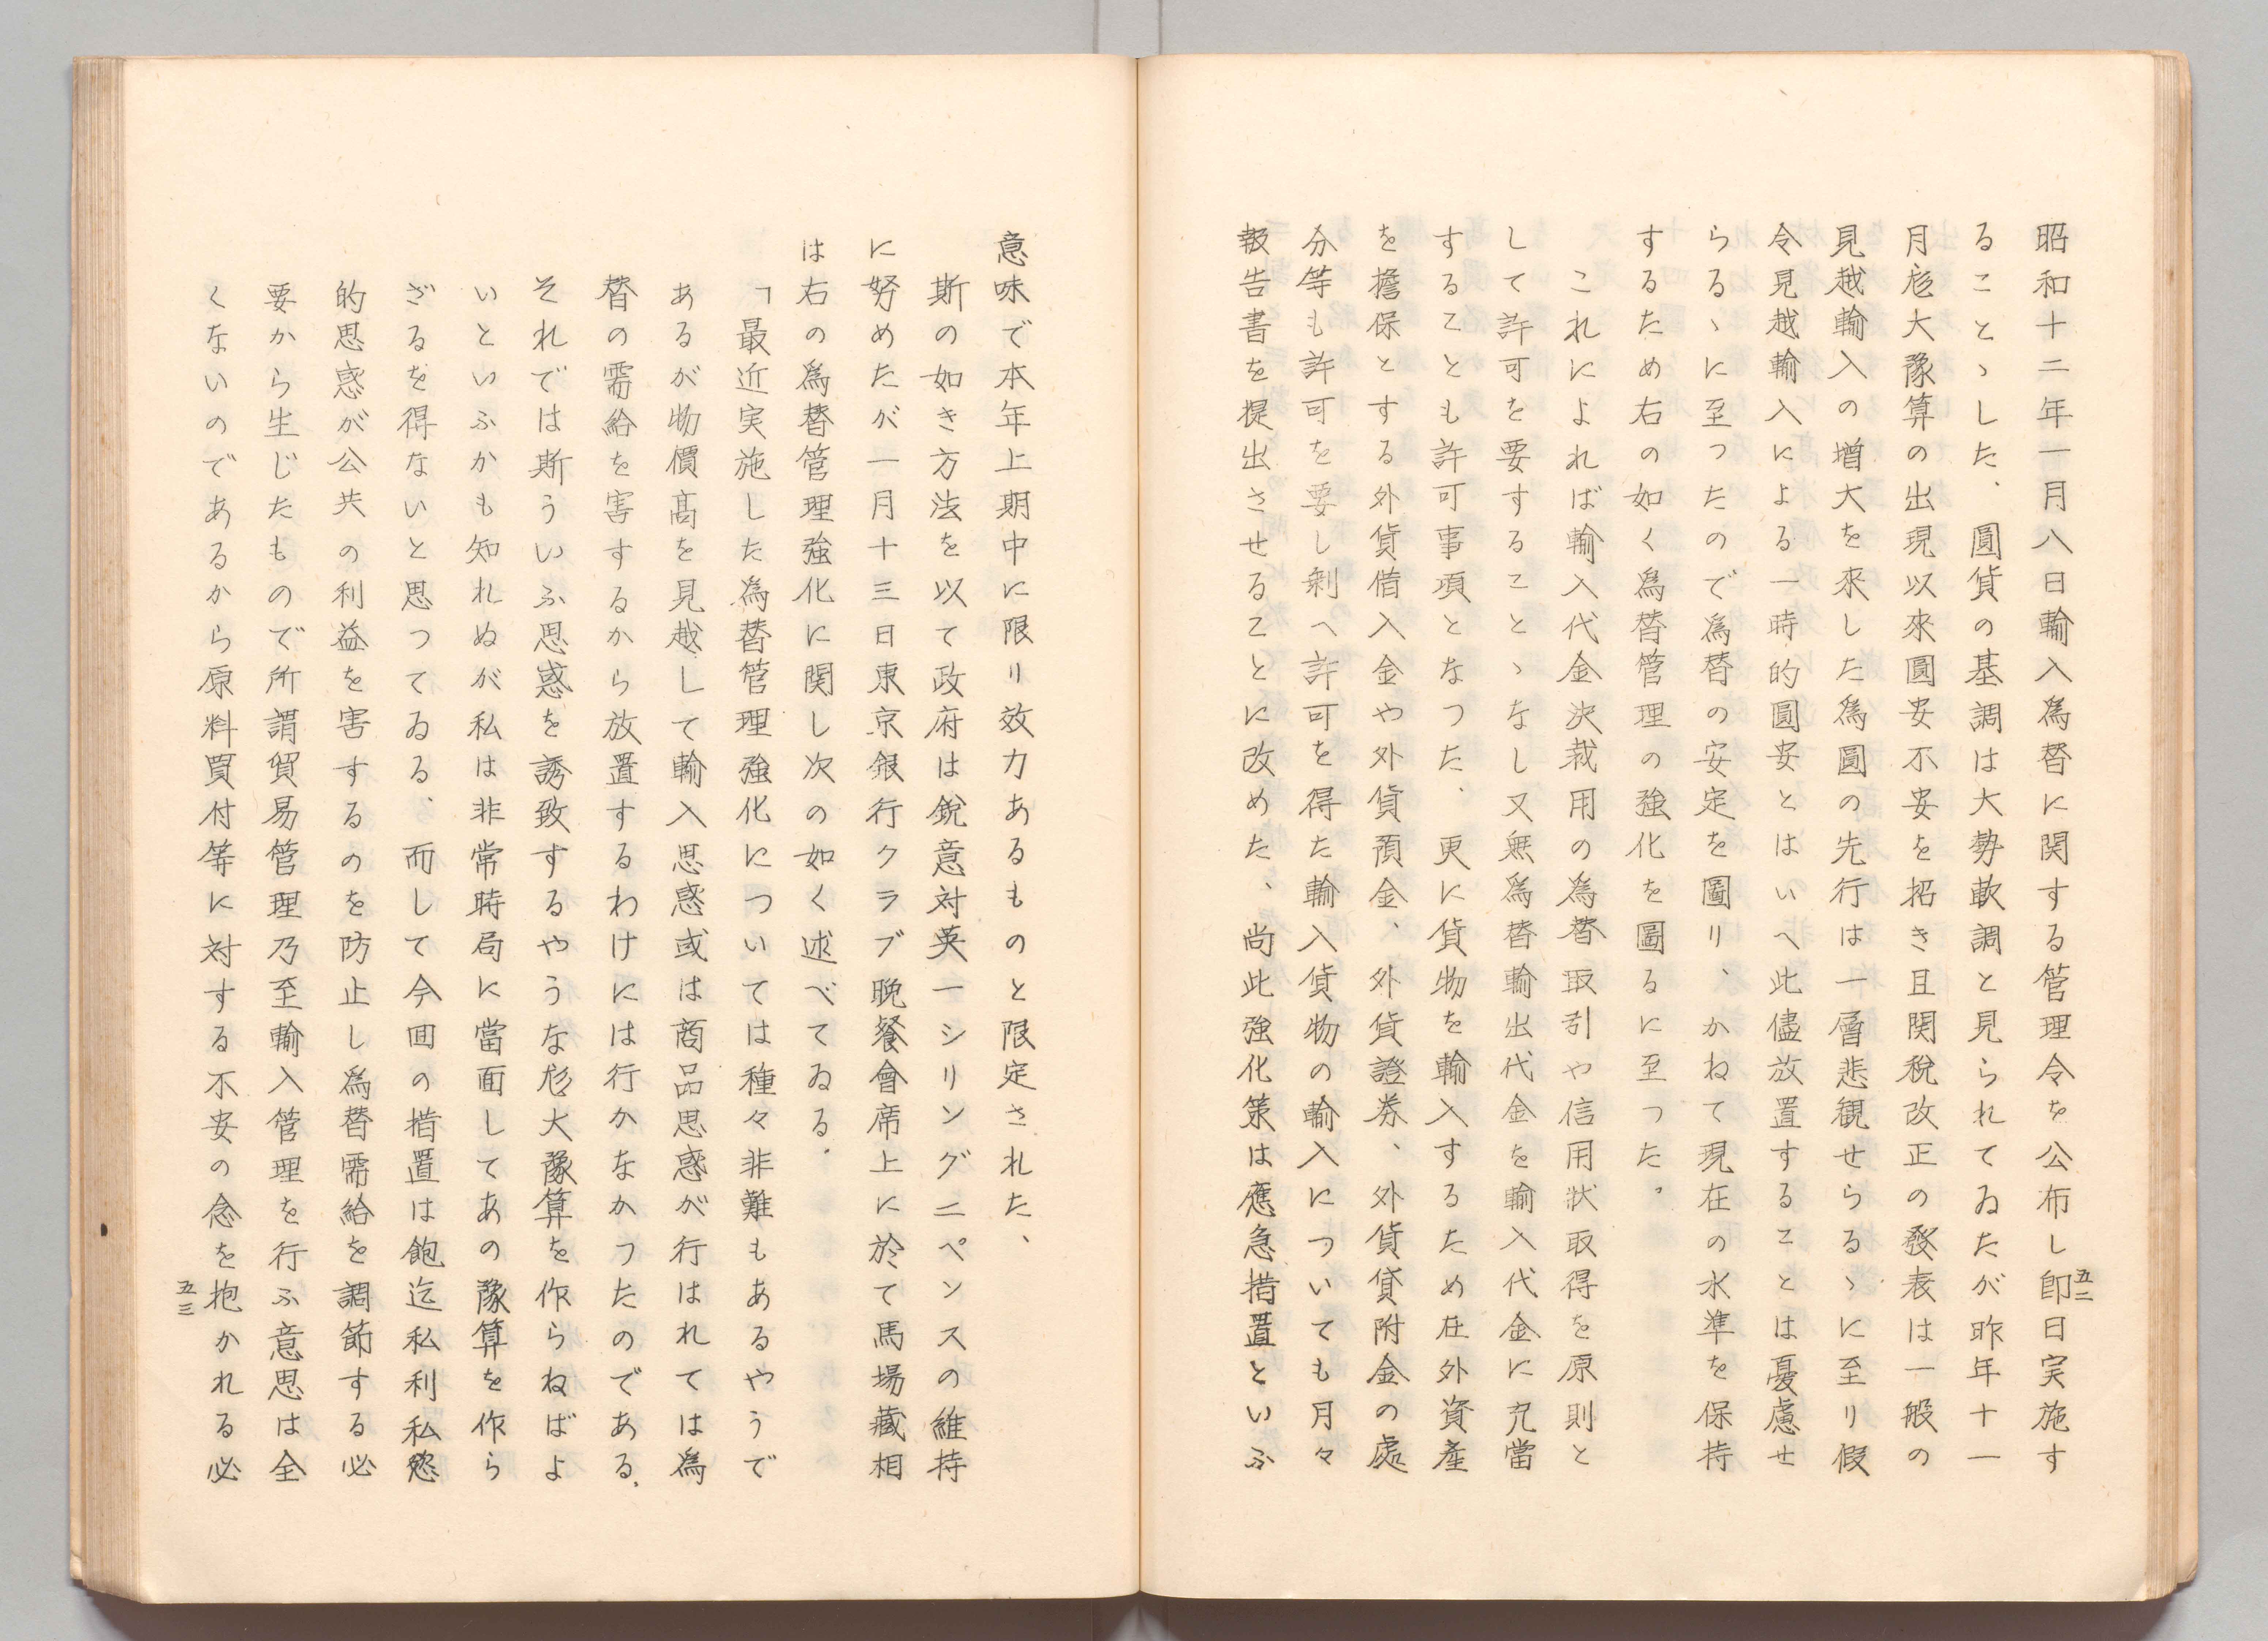 昭和十二年一月八日輸入為替に関する管理令を公布し即日実施す
ることゝした、圓貨の基調は大勢軟調と見られてゐたが昨年十一
月尨大豫算の出現以來圓安不安を招き且関税改正の發表は一般の
見越輸入の増大を來した為圓の先行は一層悲観せらるゝに至り假
令見越輸入による一時的圓安とはいへ此儘放置することは憂慮せ
らるゝに至つたので為替の安定を圖り、かねて現在の水準を保持
するため右の如く為替管理の強化を圖るに至つた。
これによれば輸入代金決裁用の為替取引や信用状取得を原則と
して許可を要することゝなし又無為替輸出代金を輸入代金に充當
することも許可事項となつた、更に貨物を輸入するため在外資産
を擔保とする外貨借入金や外貨預金、外貨證券、外貨貸附金の處
分等も許可を要し剰へ許可を得た輸入貨物の輸入についても月々
報告書を提出させることに改めた、尚此強化策は應急措置といふ
五二
意味で本年上期中に限り效力あるものと限定された、
斯の如き方法を以て政府は銳意対英一シリングニペンスの維持
に努めたが一月十三日東京銀行クラブ晩餐會席上に於て馬場藏相
は右の為替管理強化に関し次の如く述べてゐる.
「最近実施した為替管理強化については種々非難もあるやうで
あるが物價髙を見越して輸入思惑或は商品思惑が行はれては為
替の需給を害するから放置するわけには行かなかつたのである.
それでは斯ういふ思惑を誘致するやうな尨大豫算を作らねばよ
いといふかも知れぬが私は非常時局に當面してあの豫算を作ら
ざるを得ないと思つてゐる、而して今囬の措置は飽迄私利私慾
的思惑が公共の利益を害するのを防止し為替需給を調節する必
要から生じたもので所謂貿易管理乃至輸入管理を行ふ意思は全
くないのであるから原料買付等に対する不安の念を抱かれる必
五三